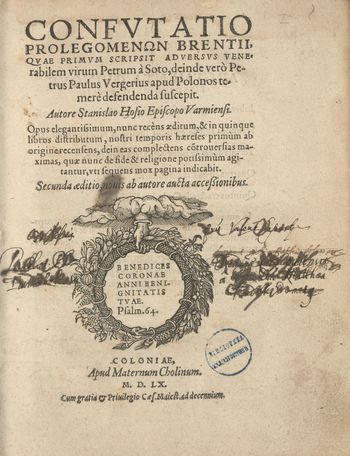 CONFVTATIO
PROLEGOMENΩN BRENTII,
QVAE PRIMVM SCRIPSIT ADVERSVS VENE-
rabilem virum Petrum à Soto, deinde verò Pe-
trus Paulus Vergerius apud Polonos te-
merè defendenda suscepit.
Autore Stanislao Hosio Episcopo Varmiensi.
Opus elegantissimum, nunc recèns æditum, & in quinque
libros distributum, nostri temporis hæreses primùm ab
origine recensens, dein eas complectens cõtrouersias ma-
ximas, quæ nunc de fide & religione potissimùm agi-
tantur, vti sequens mox pagina indicabit.
Secunda æditio, nouis ab autore aucta accessionibus.
BENEDICES
CORONAE
ANNI BENI-
GNITATIS
TVAE.
Psalm. 64.
COLONIAE,
Apud Maternum Cholinum.
M. D. LX.
Cum gratia & Priuilegio Cæs. Maiest. ad decennium.